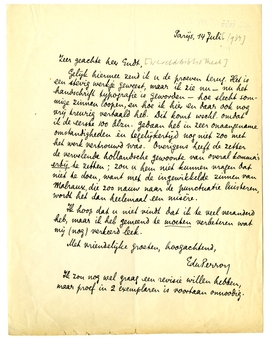 Parijs, 14 Juli (1937)
Zeer geachte heer Gudt,
Gelijk hiermee zend ik u de proeven terug. Het is
een stevig werkje geweest, maar ik zie nu – nu het
handschrift typografie is geworden – hoe slecht som-
mige zinnen loopen, en hoe ik hier en daar ook nog
vrij treurig vertaald heb. Dit komt wschl. omdat
ik de eerste 100 blzn. gedaan heb in zeer onaangename
omstandigheden en tegelijkertijd nog niet zoo met
het werk vertrouwd was. Overigens heeft de zetter
de vervelende hollandsche gewoonte van overal komma's
erbij te zetten; zou u hem niet kunnen vragen dat
niet te doen, want met die ingewikkelde zinnen van
Malraux, die zoo nauw naar de punctuatie luisteren,
wordt het dan heelemaal een misère.
Ik hoop dat u niet vindt dat ik te veel veranderd
heb, maar ik heb gemeend te moeten verbeteren wat
mij (nog) verkeerd leek.
Met vriendelijke groeten, hoogachtend,
EduPerron
Ik zou nog wel graag een revisie willen hebben,
maar proef in 2 exemplaren is voortaan onnoodig.